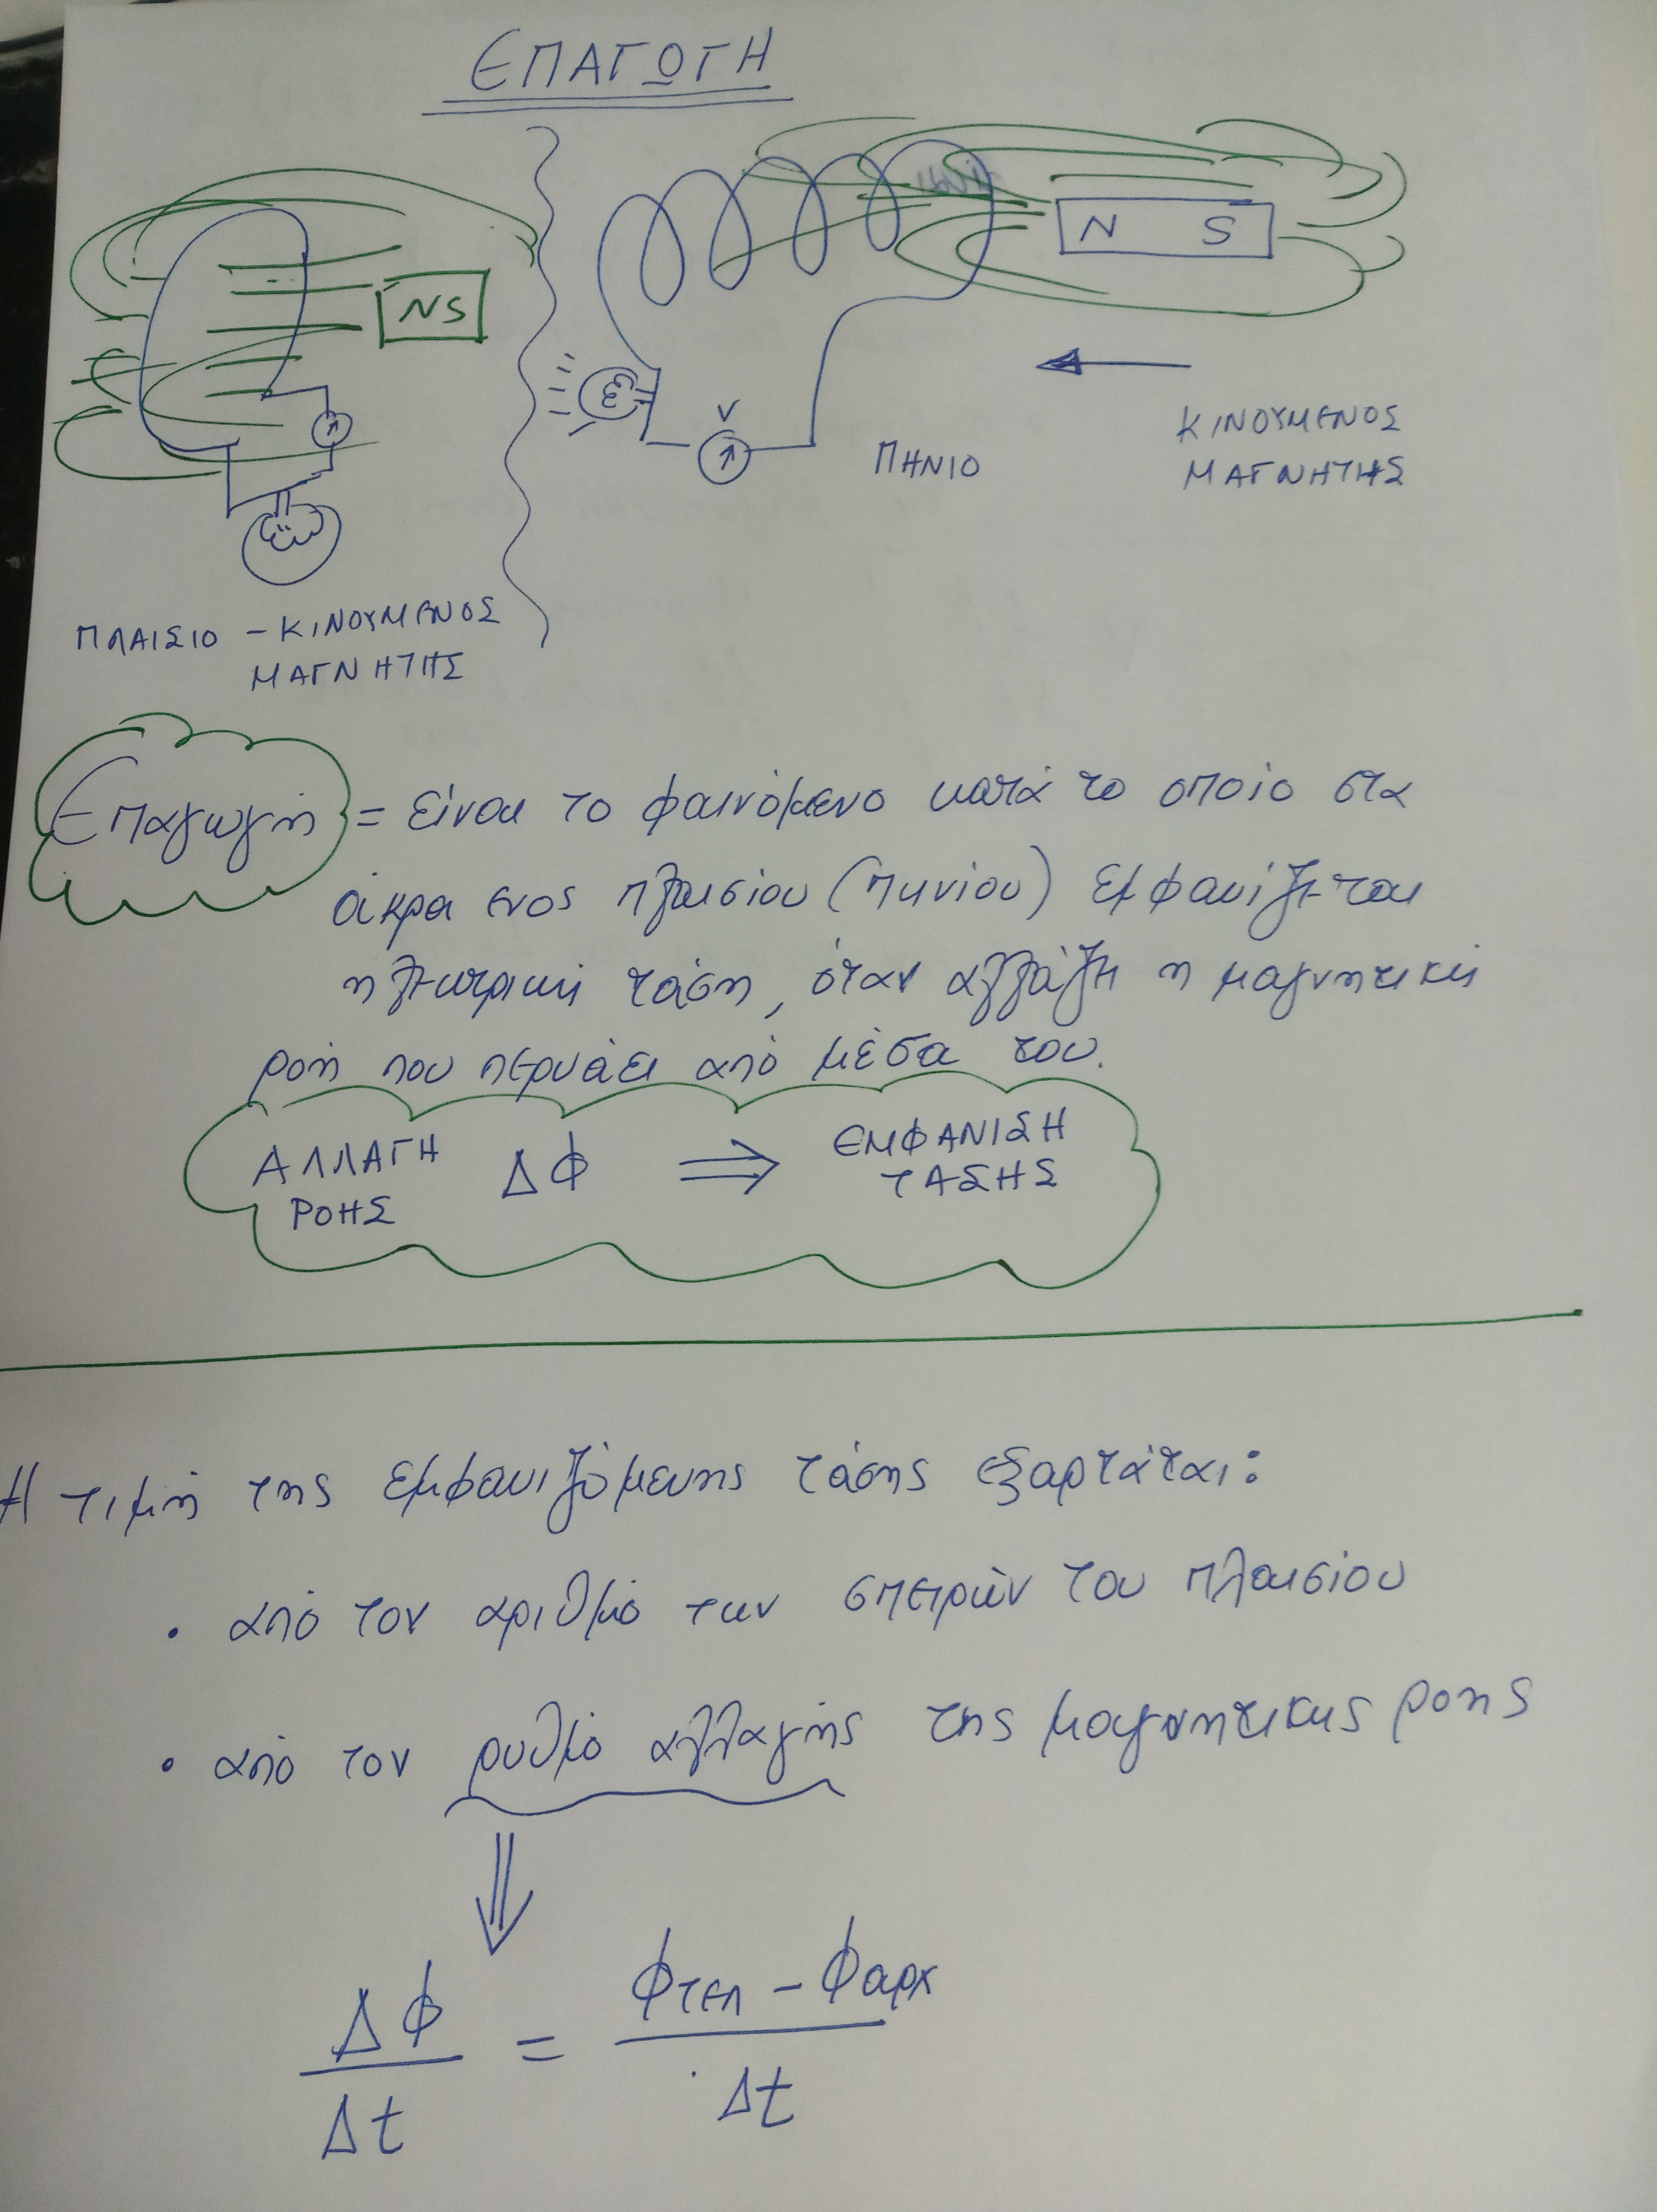 ΕΠΑΓΩΓΗ
N S
N S
V
ΠΗΝΙΟ
ΚΙΝΟΥΜΕΝΟΣ
ΜΑΓΝΗΤΗΣ
ΠΛΑΙΣΙΟ - ΚΙΝΟΥΜΕΝΟΣ
ΜΑΓΝΗΤΗΣ
Επαγωγή = είναι το φαινόμενο κατά το οποίο στα
άκρα ενος πλαισίου (πηνίου) εμφανίζεται
ηλεκτρική τάση, όταν αλλάζει η μαγνητική
ροή που περνάει από μέσα του.
ΑΛΛΑΓΗ ΔΦ ⇒ ΕΜΦΑΝΙΣΗ
ΡΟΗΣ ΤΑΣΗΣ
Η τιμή της εμφανιζόμενης τάσης εξαρτάται:
• από τον αριθμό των σπειρών του πλαισίου
• από τον ρυθμό αλλαγής της μαγνητικης ροης
⇓
ΔΦ/Δt = Φτελ - Φαρχ/Δt